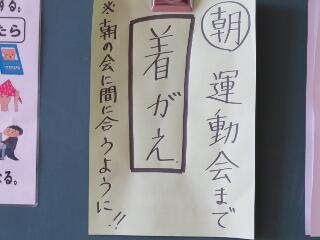 朝 運動会まで
着がえ
※朝の会に間に合うように!!
する。
たら
る。